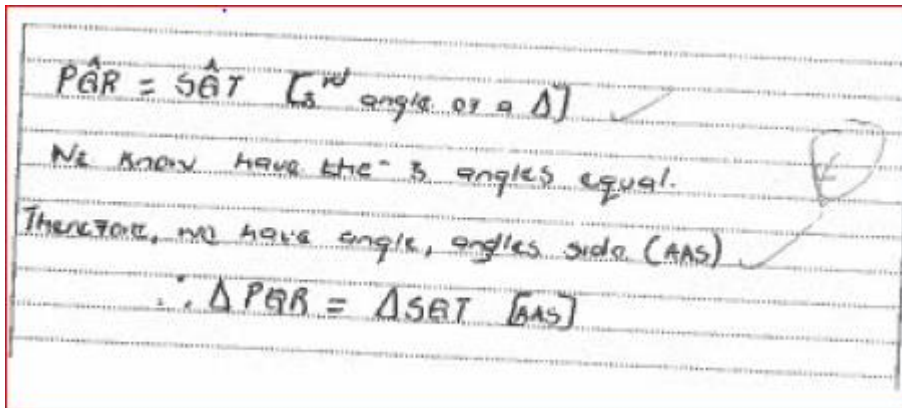 PQ̂R = SQ̂T [3rd angle of a Δ]
We know have the 3 angles equal.
Therefore, we have angle, angles side (AAS)
∴ Δ PQR = Δ SQT [AAS]